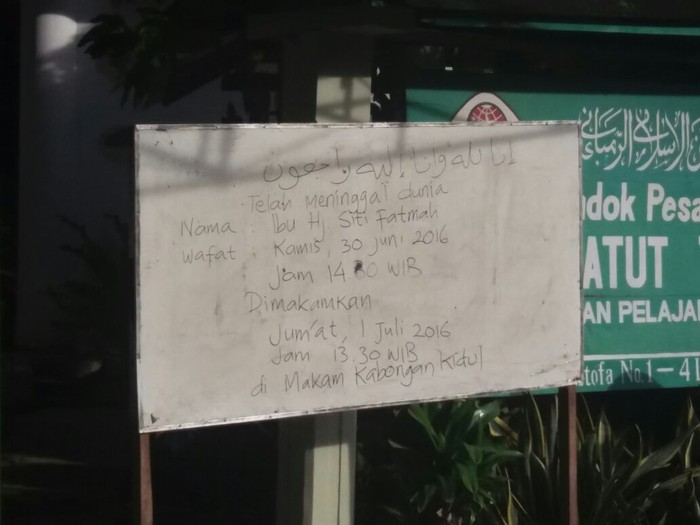 انا لله وانا اليه راجعون
Telah meninggal dunia
Nama : Ibu Hj Siti Fatmah
Wafat : Kamis, 30 Juni 2016
Jam 14 30 WIB
Dimakamkan
Jum'at, 1 Juli 2016
Jam 13.30 WIB
di Makam Kabongan Kidul
dok Pesa
ATUT
AN PELAJA
tofa No.1-4 L